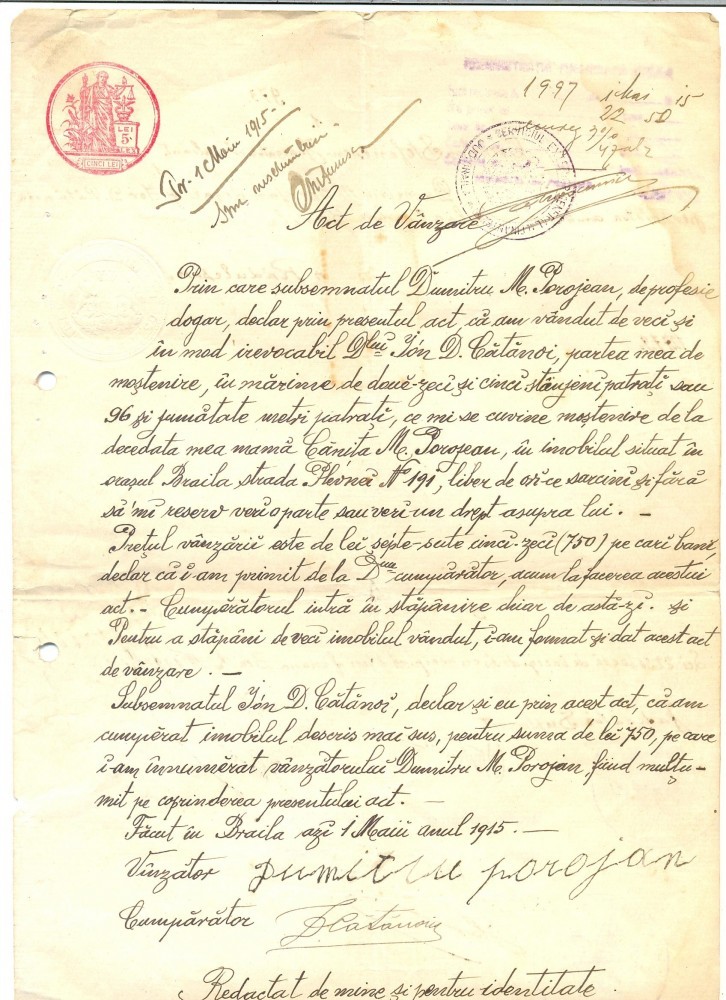 LEI
5
LEI
CINCI LEI
1997 1 Mai 15
22 50
Pr. 1 Maiu 915.
SERVICIUL
Act de Vânzare
Prin care subsemnatul Dumitru M. Porojean, de profesie
dogar, declar prin presentul act, că am vândut de veci și
în mod irevocabil Dlui Ión D. Cătănoi, partea mea de
moștenire, în mărime de două-zeci și cinci stânjeni patrați sau
96 și jumătate metri patrați, ce mi se cuvine moștenire de la
decedata mea mamă Cănița M. Porojean, în imobilul situat în
orașul Braila strada Plevnei No 191, liber de ori-ce sarcini și fără
să'mi reserv veri o parte sau veri-un drept asupra lui. —
Prețul vânzării este de lei șepte-sute cinci-zeci (750) pe cari bani,
declar că i-am primit de la D-nu cumpărător, acum la facerea acestui
act. - Cumpărătorul intră în stăpânire chiar de astă-zi. și
Pentru a stăpâni de veci imobilul vândut, i-am format și dat acest act
de vânzare. —
Subsemnatul Ión D. Cătănoi, declar și eu prin acest act, că am
cumpărat imobilul descris mai sus, pentru suma de lei 750, pe care
i-am înnumărat vânzătorului Dumitru M. Porojan, fiind mulțu-
mit pe coprinderea presentului act. —
Făcut în Braila azi 1 Maiŭ anul 1915. —
Vînzător Dumitru porojan
Cumpărător D Cătănoiu
Redactat de mine și pentru identitate.